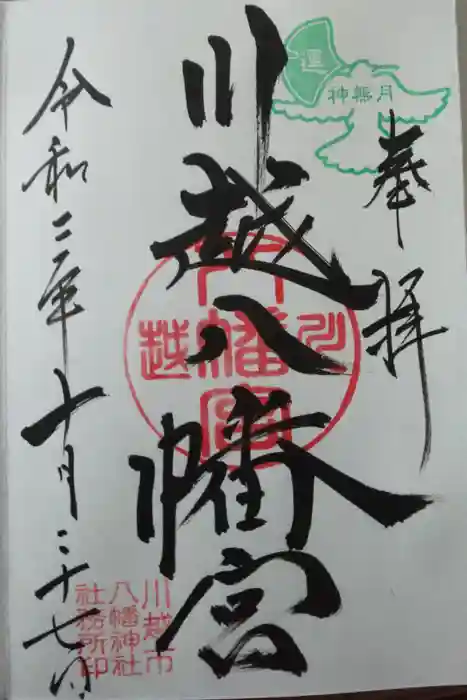 奉拝
神無月
運
川越八幡宮
川越
八幡宮
令和二年十月二十七日
川越市
八幡神社
社務所印